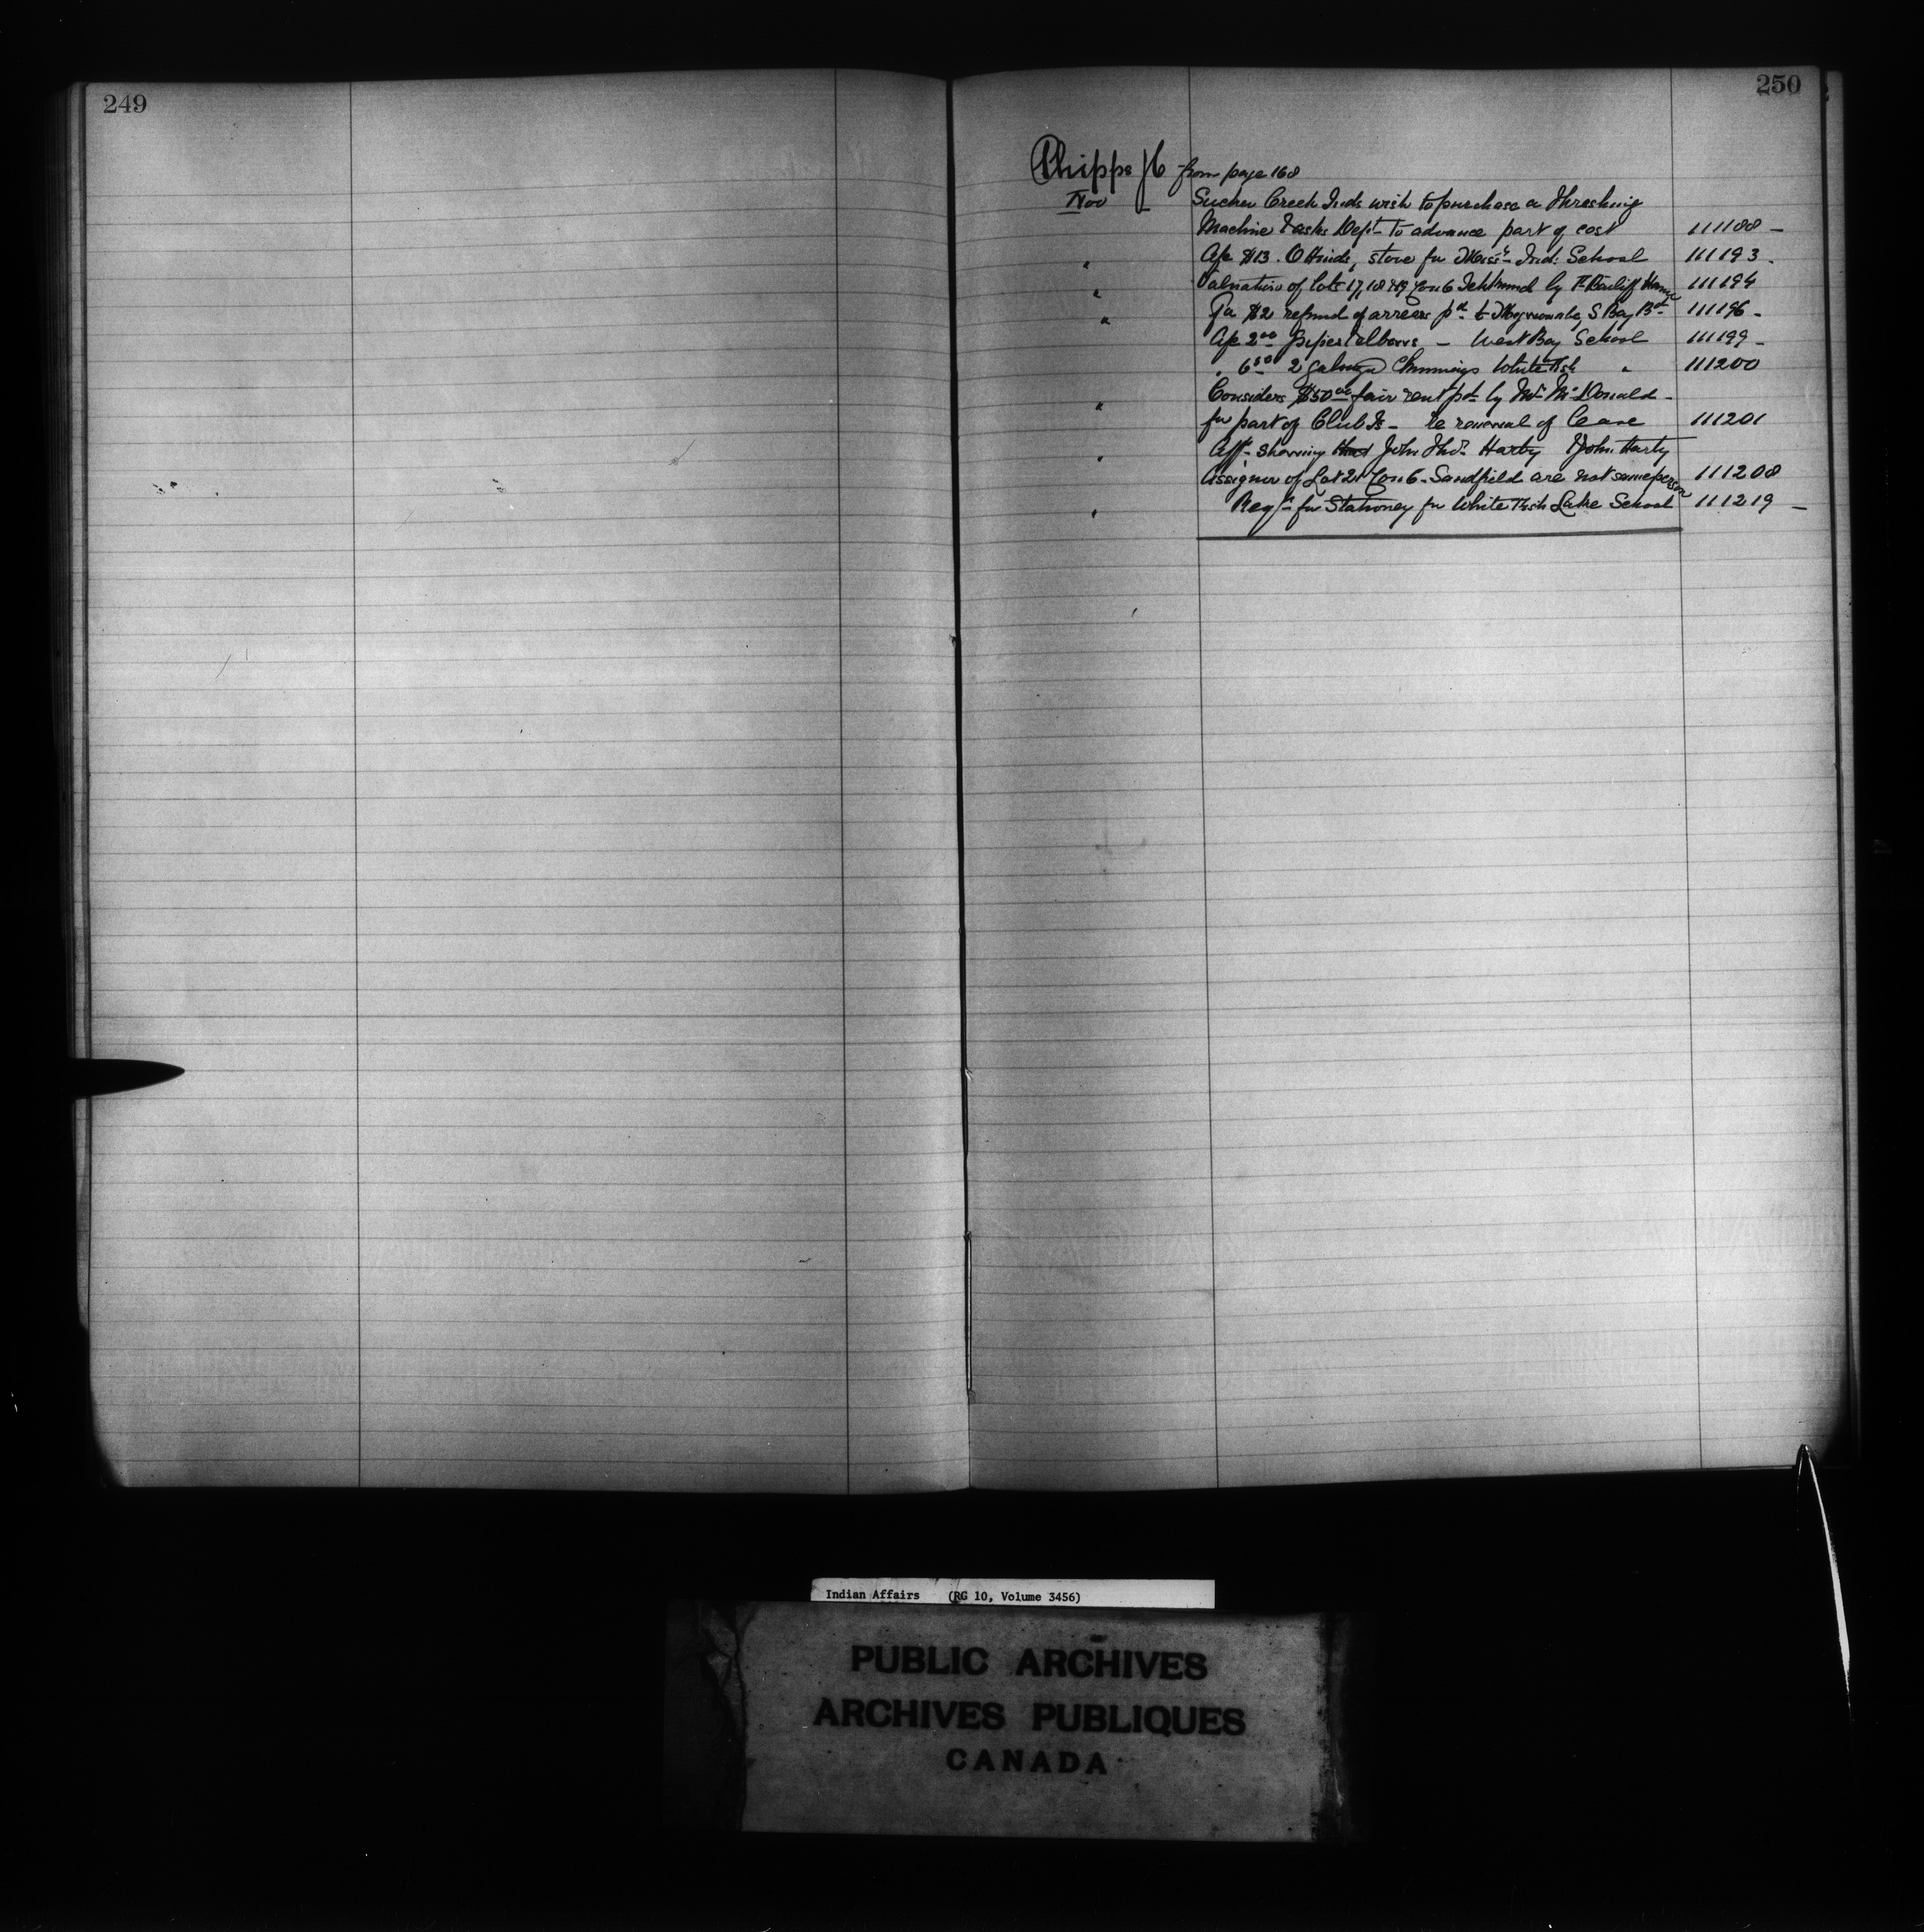 249
250
Phipps JC from page 168
Nov Sucker Creek Inds wish to purchase a Threshing
Machine & asks Dept to advance part of cost 111188 -
" Ape $13. O Hinds, stove for Ind: School 111193 -
" Valuation of lots 17, 18 & 19 Con 6 Tehkummah by F. Bailiff 111194
" For $2 refund of arrears pd to S Bay Bd 111196 -
Ape 2.00 pipes & elbows - West Bay School 111199 -
" 6.50 2 Chimneys White Fish " 111200
" Considers $50.00 fair rent pd by Mr McDonald -
for part of Club Is - re renewal of lease 111201
" Aff - showing that John Thos Harty & John Harty
Assignor of Lot 21 Con 6 - Sandfield are not same person 111208
" Reqn for Stationey for White Fish Lake School 111219 -
Indian Affairs (RG 10, Volume 3456)
PUBLIC ARCHIVES
ARCHIVES PUBLIQUES
CANADA